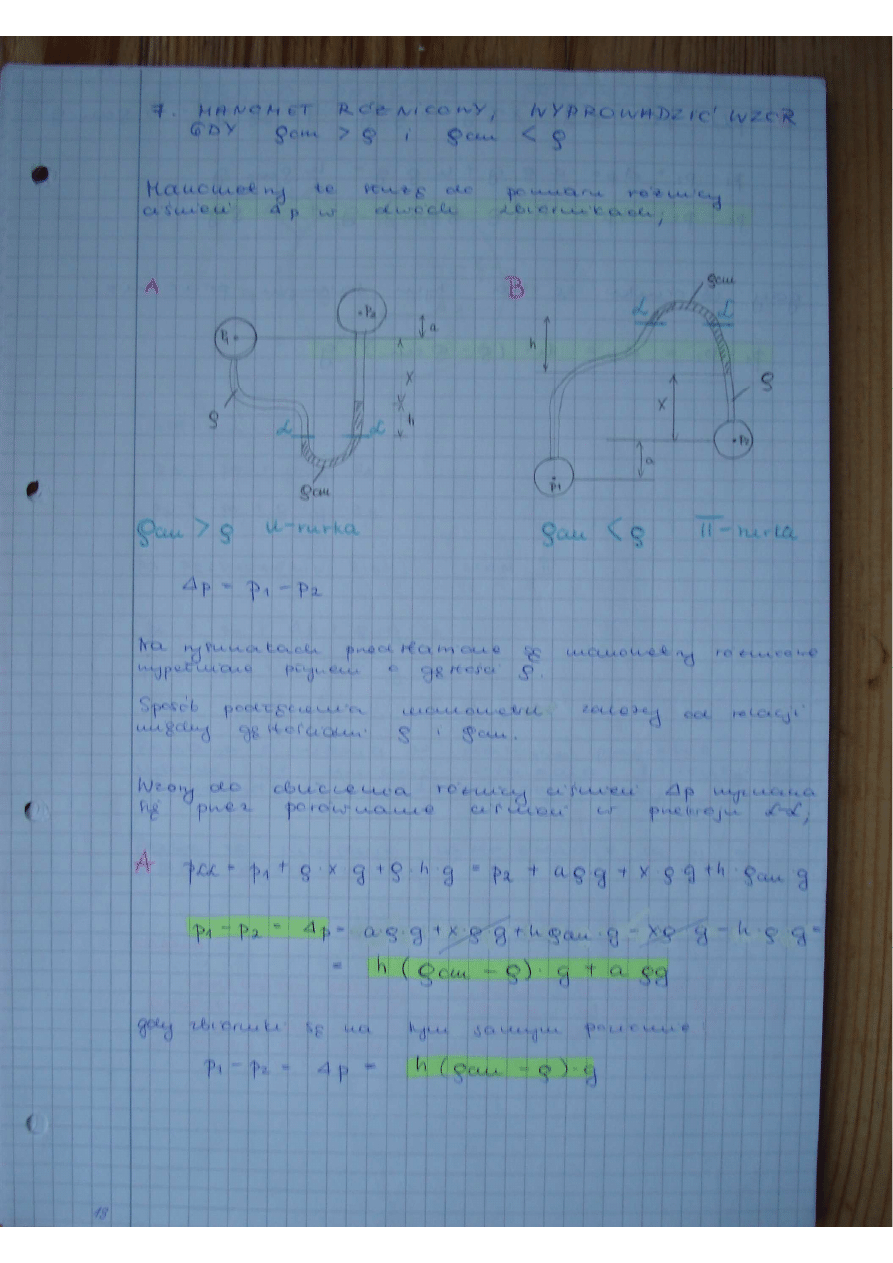 7. MANOMET RÓŻNICOWY, WYPROWADZIĆ WZÓR
GDY ρcm > ρ i ρcm < ρ
Manometry te służą do pomiaru różnicy
ciśnień Δp w dwóch zbiornikach,
A
B
ρcm
p1
p2
a
x
h
ρ
α
α
ρcm
h
α
α
x
ρ
p2
a
p1
ρcm > ρ U-rurka
ρcm < ρ Π-rurka
Δp = p1 - p2
Na rysunkach przedstawiono manometry różnicowe
wypełnione płynem o gęstości ρ.
Sposób podłączenia manometru zależy od relacji
między gęstościami ρ i ρcm.
Wzory do obliczenia różnicy ciśnień Δp wyznacza
się przez porównanie ciśnień w przekroju α-α,
A pαα = p1 + ρ·x·g + ρ·h·g = p2 + aρg + xρg + h·ρcm g
p1 - p2 = Δp = aρ·g + x·ρ·g + hρcm·g - xρ·g - h·ρ·g =
= h(ρcm - ρ)·g + aρg
gdy zbiorniki są na tym samym poziomie
p1 - p2 = Δp = h(ρcm - ρ)·g
18